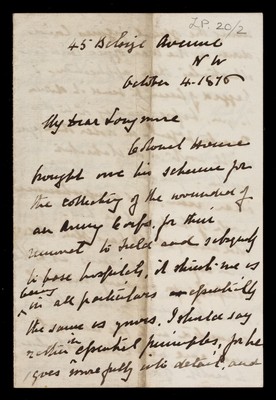 I.P. 20/2
45 Belsize Avenue
N W
October 4. 1876
My dear Longmore
Colonel House
brought over his scheme for
the collecting of the wounded of
an Army Corps, for their
removal to field and subsequently
to base hospitals, it which he is
being in all particulars essentially
the same as yours. I should say
rather in essential principles, for he
goes more fully into detail, and